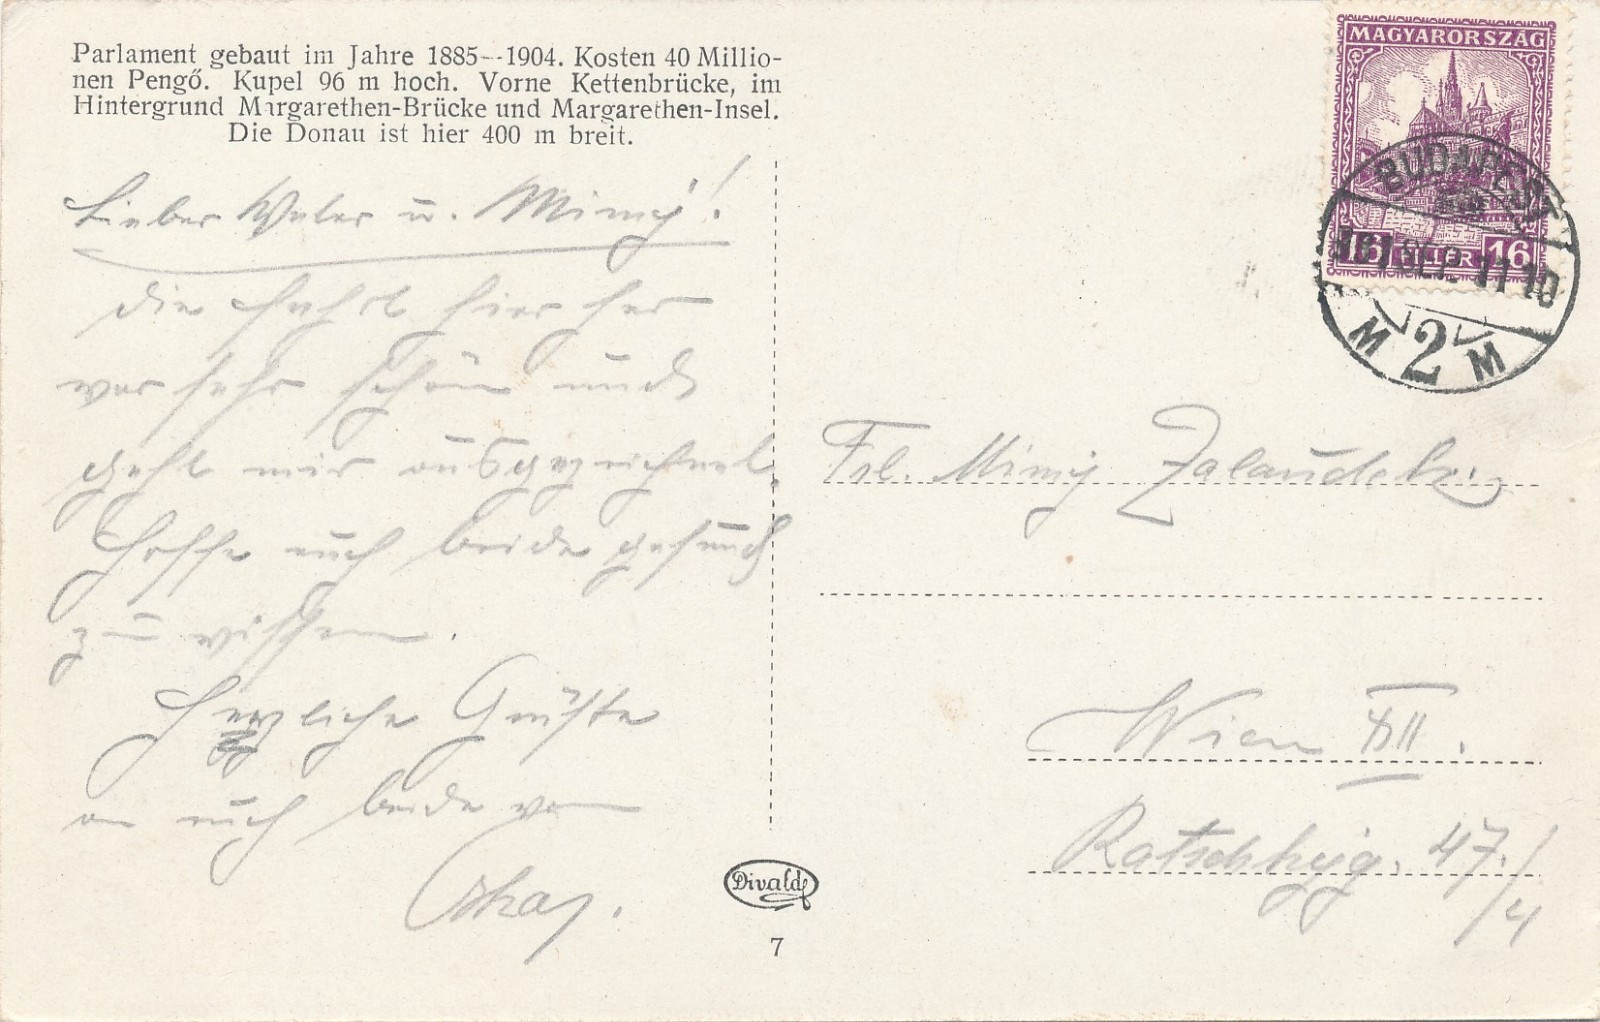 Parlament gebaut im Jahre 1885--1904. Kosten 40 Millio-
nen Pengő. Kupel 96 m hoch. Vorne Kettenbrücke, im
Hintergrund Margarethen-Brücke und Margarethen-Insel.
Die Donau ist hier 400 m breit.
MAGYARORSZÁG
16 FILLÉR 16
BUDAPEST
SEP 11 10
M 2 M
Lieber u. Mimy!
die Fahrt hier her
war sehr schön und
geht mir ausgezeichnet.
Hoffe euch beide gesund
zu wissen.
Herzliche Grüsse
an euch beide von
Frl. Mimy Zalaudek.
Wien XII.
Ratschkyg. 47./4
Divald
7